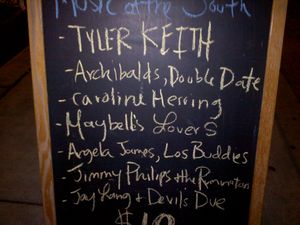 Music of the South
- TYLER KEITH
- Archibalds, Double Date
- Caroline Herring
- Maybell's Lovers
- Angela James, Los Buddies
- Jimmy Philips & the
- Jay Lang & Devil's Due
$ 10